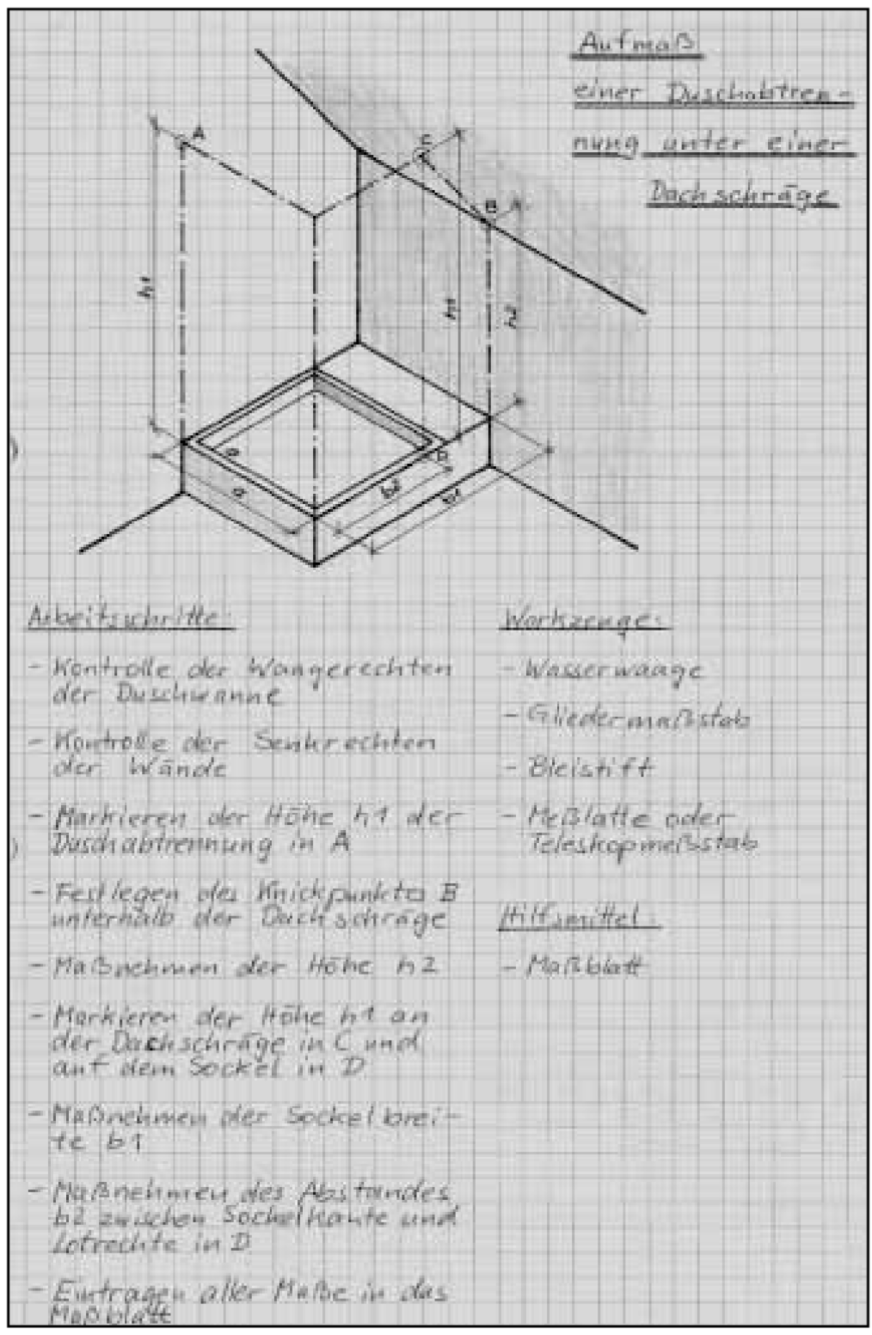 Aufmaß
einer Duschabtren-
nung unter einer
Dachschräge
A
C
B
h1
h1
h2
a
a
b2
D
b1
Arbeitsschritte:
- Kontrolle der Waagerechten
der Duschwanne
- Kontrolle der Senkrechten
der Wände
- Markieren der Höhe h1 der
Duschabtrennung in A
- Festlegen des Knickpunkts B
unterhalb der Dachschräge
- Maßnehmen der Höhe h2
- Markieren der Höhe h1 an
der Dachschräge in C und
auf dem Sockel in D
- Maßnehmen der Sockelbrei-
te b1
- Maßnehmen des Abstandes
b2 zwischen Sockelkante und
Lotrechte in D
- Eintragen aller Maße in das
Maßblatt
Werkzeuge:
- Wasserwaage
- Gliedermaßstab
- Bleistift
- Meßlatte oder
Teleskopmeßstab
Hilfsmittel:
- Maßblatt